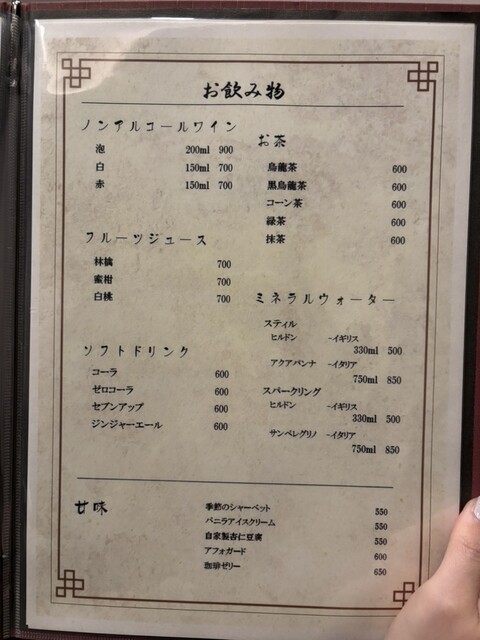 お飲み物
ノンアルコールワイン
泡 200ml 900
白 150ml 700
赤 150ml 700
フルーツジュース
林檎 700
蜜柑 700
白桃 700
ソフトドリンク
コーラ 600
ゼロコーラ 600
セブンアップ 600
ジンジャーエール 600
お茶
烏龍茶 600
黒烏龍茶 600
コーン茶 600
緑茶 600
抹茶 600
ミネラルウォーター
スティル
ヒルドン ~イギリス
330ml 500
アクアパンナ ~イタリア
750ml 850
スパークリング
ヒルドン ~イギリス
330ml 500
サンペレグリノ ~イタリア
750ml 850
甘味
季節のシャーベット 550
バニラアイスクリーム 550
自家製杏仁豆腐 550
アフォガード 600
珈琲ゼリー 650